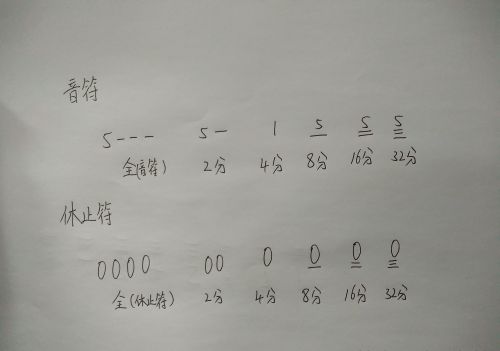 音符
5--- 5- 1 5 5 5
全(音符) 2分 4分 8分 16分 32分
休止符
0000 00 0 0 0 0
全(休止符) 2分 4分 8分 16分 32分